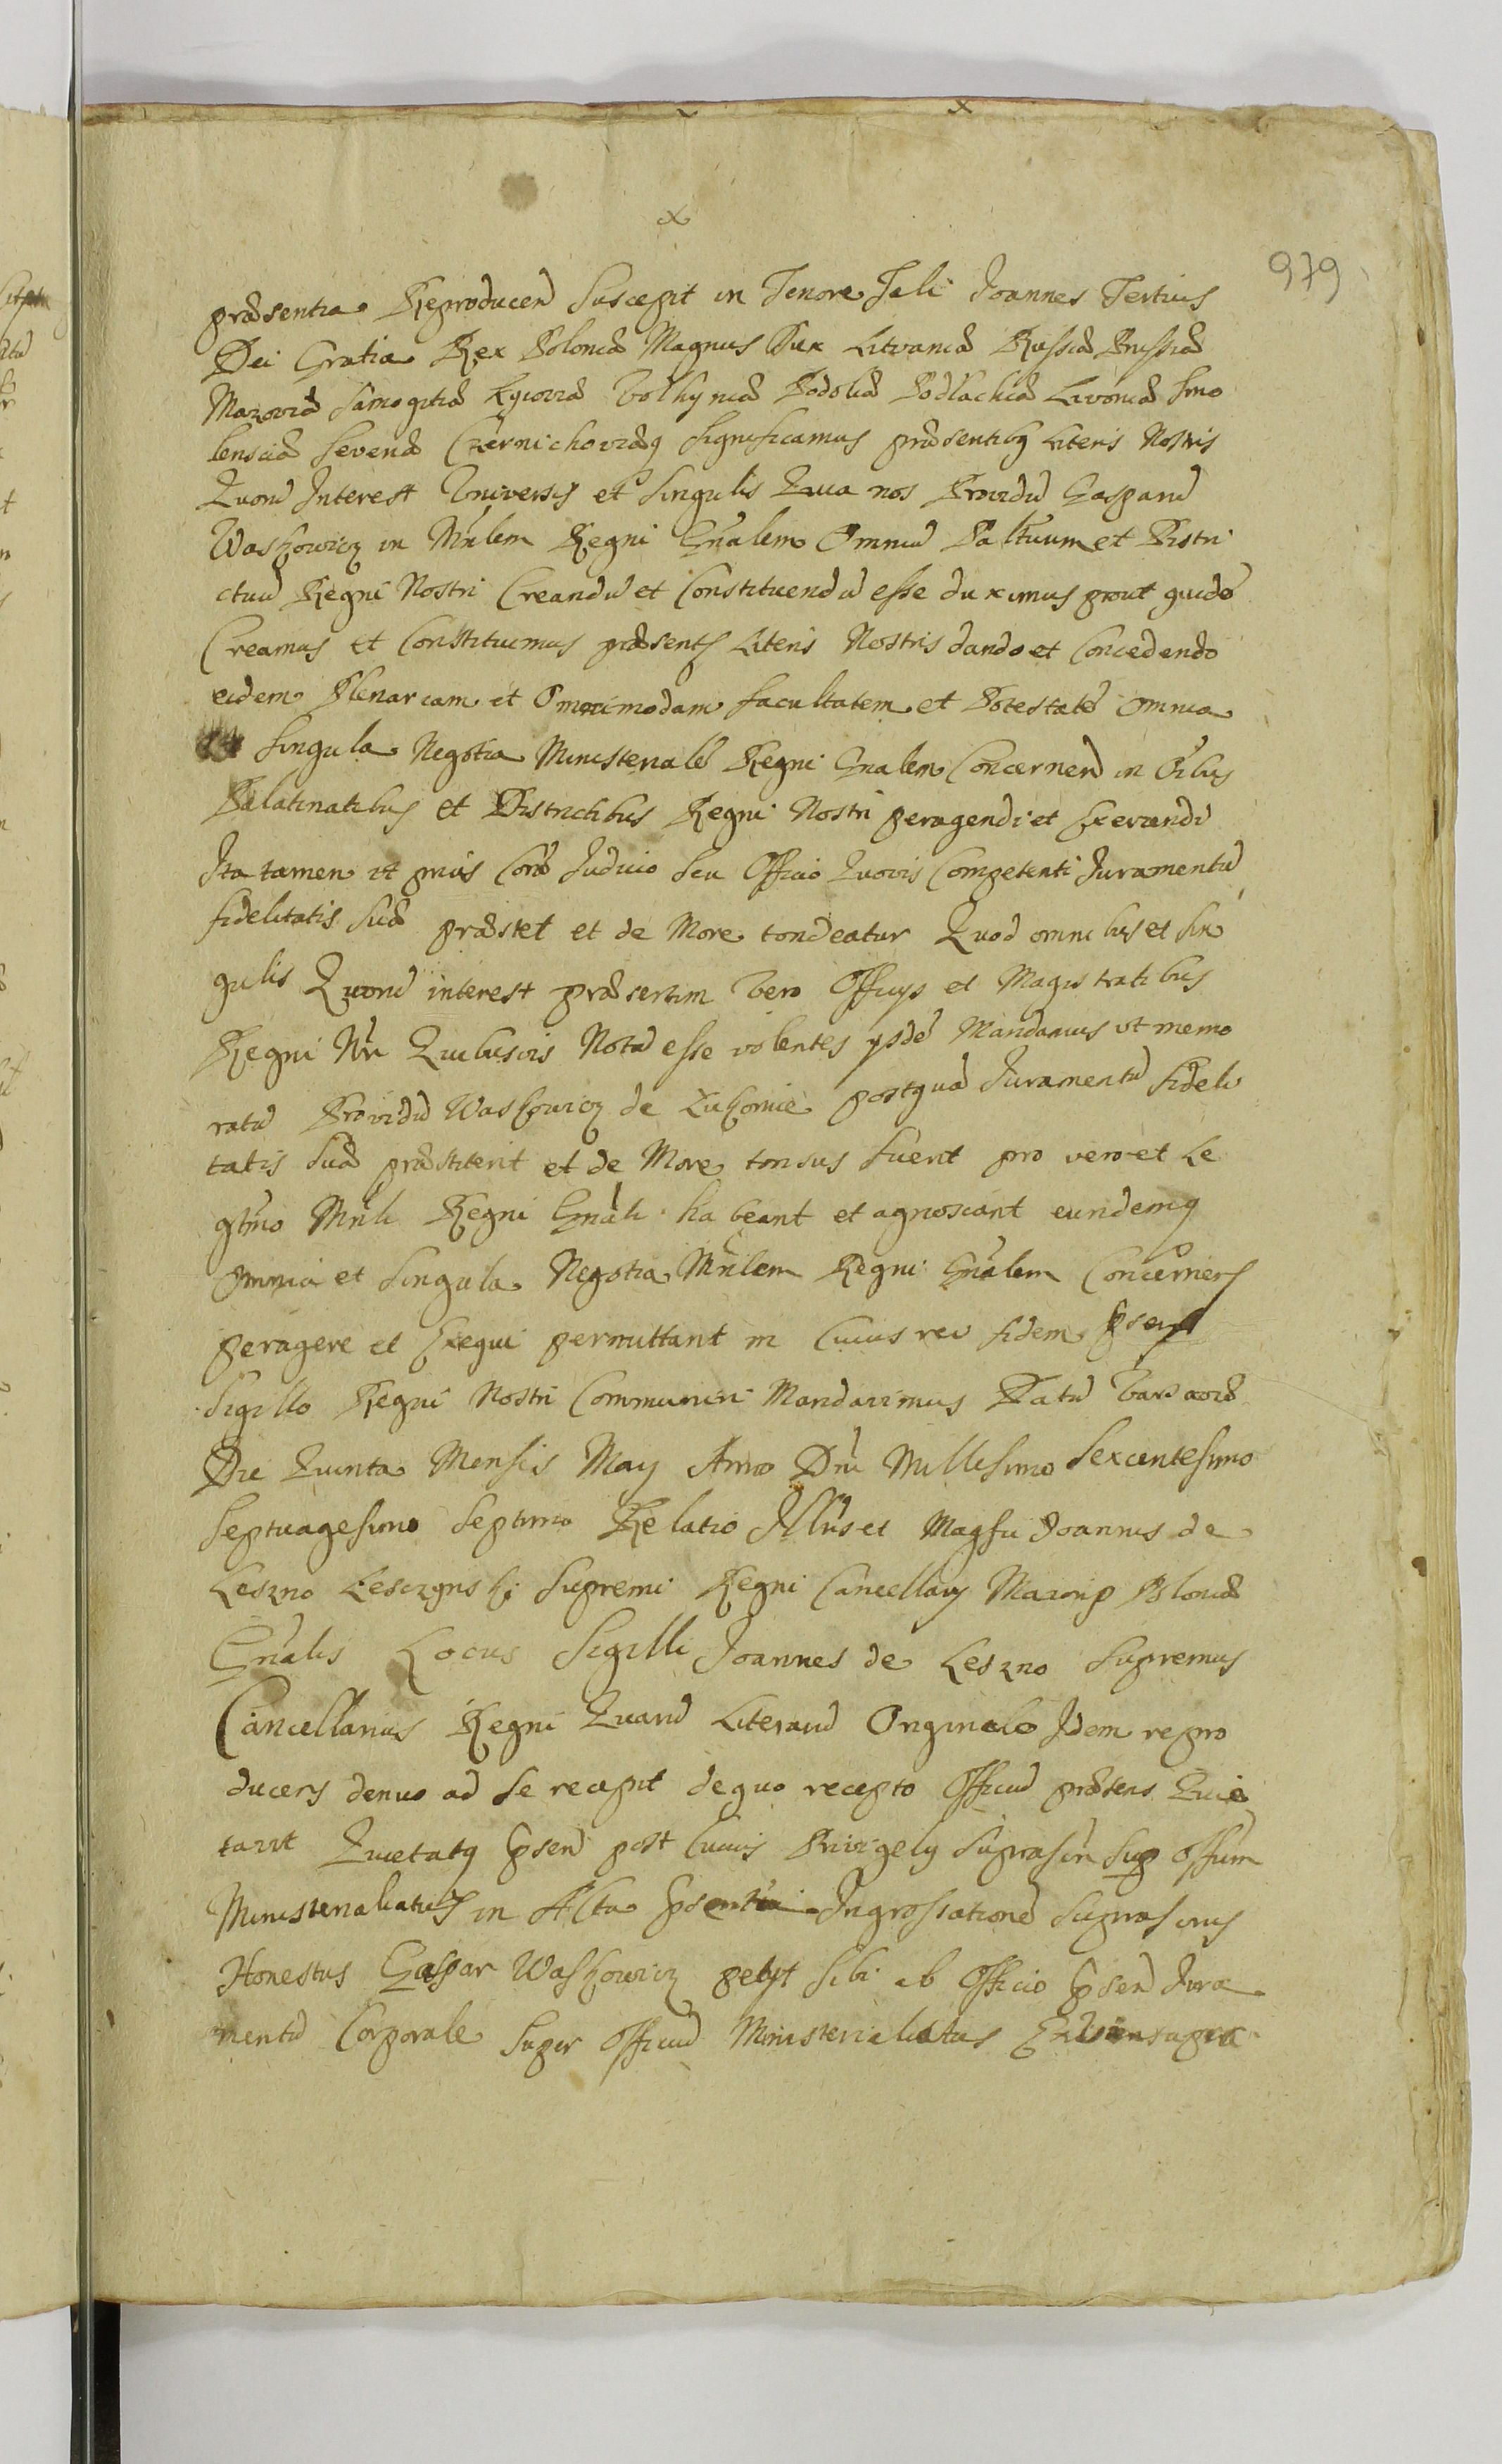 979
præsentia Reproducen Suscepit in Tenore Tali Joannes Tertius
Dei Gratia Rex Poloniæ Magnus Dux Litvaniæ Russiæ Prussiæ
Mazoviæ Samogitiæ Kyioviæ Volhyniæ Podoliæ Podlachiæ Livoniæ Smo
lensciæ Severiæ Czernichoviæq Significamus præsentibq Literis Nostris
Quorū Interest Universis et Singulis Quia nos Providū Gasparū
Waskowicz in Mnlem Regni Gnalem Omniū Paltuum et Distri
ctuū Regni Nostri Creandū et Constituendū esse duximus prout quidē
Creamus et Constituimus præsents Literis Nostris dando et Concedendo
eidem Plenariam et Omnimodam facultatem et Potestatē omnia
et Singula Negotia Ministerialē Regni Gnalem Concernen in Oibus
Palatinatibus et Districtibus Regni Nostri peragendi et Exequendi
Ita tamen ut prius Corā Judicio Seu Officio Quovis Competenti Juramentū
fidelitatis Suæ præstet et de More tondeatur Quod omnibus et Sin
gulis Quorū interest præsertim Vero Officijs et Magistratibus
Regni Nri Quibusvis Notū esse volentes ijsdē Mandamus ut memo
ratū Providū Waskowicz de postquā Juramentū fideli
tatis Suæ præstiterit et de More tonsus fuerit pro vero et Le
gtmo Mnli Regni Gnali habeant et agnoscant eundemq
omnia et Singula Negotia Mnlem Regni Gnalem Concernens
peragere et Exequi permittant in Cuius rei fidem
Sigillo Regni Nostri Communiri Mandavimus Datū Varsaviæ
Die Quinta Mensis May Anno Dni Millesimo Sexcentesimo
Septuagesimo Septimo Relatio Illris et Magfci Joannis de
Leszno Lesczynski Supremi Regni Cancellarij Maioris Poloniæ
Gnalis Locus Sigilli Joannes de Leszno Supremus
Cancellarius Regni Quarū Literarū Originale Idem repro
ducens denuo ad Se recepit de quo recepto Officiū præsens Quie
tavit Quietatq psen post Cuius Privigely Suprascri Sup Offum
Ministerialiatus in Acta psentia Ingrossationē Suprascrius
Honestus Gaspar Waskowicz petyt Sibi ab Officio psen Jura
mentū Corporale Super Officiū Ministerialiatus